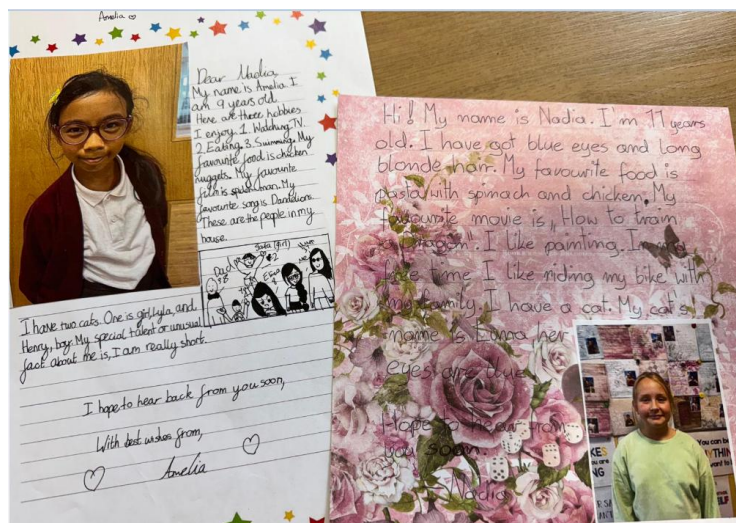 Amelia
Dear Nadia,
My name is Amelia. I
am 9 years old.
Here are three hobbies
I enjoy. 1. Watching TV.
2. Eating. 3. Swimming. My
favourite food is chicken
nuggets. My favourite
film is spiderman. My
favourite song is Dandelions.
These are the people in my
house.
Dad
I have two cats. One is girl, Lyla, and
Henry, boy. My special talent or unusual
fact about me is, I am really short.
I hope to hear back from you soon,
With best wishes from,
Amelia
Hi! My name is Nadia. I'm 11 years
old. I have got blue eyes and long
blonde hair. My favourite food is
pasta with spinach and chicken. My
favourite movie is „How to train
a Dragon". I like painting. In my
free time I like riding my bike with
my family. I have a cat. My cat's
name is Luna her
eyes are blue.
Hope to hear from
you soon.
Nadia